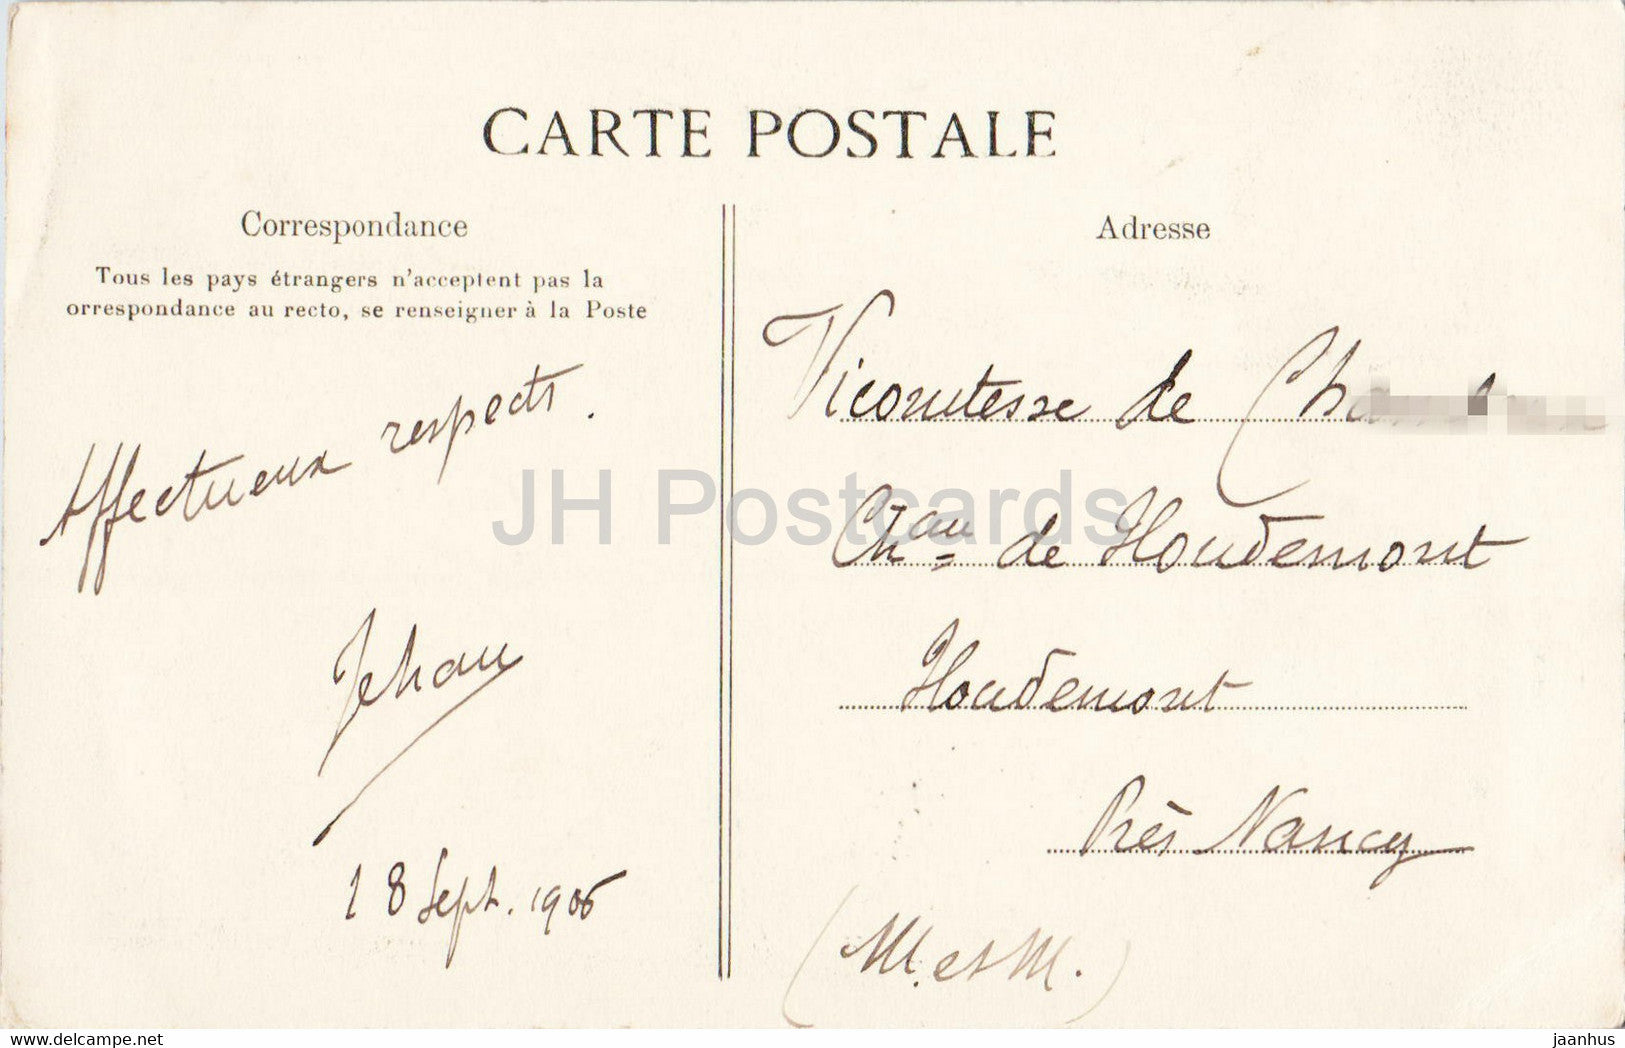 CARTE POSTALE
Correspondance
Tous les pays étrangers n'acceptent pas la
orrespondance au recto, se renseigner à la Poste
Affectueux respects.
Jehan
18 Sept. 1906
Adresse
Vicomtesse de
Ch^au de Houdemont
Houdemont
Près Nancy
(M. et M.)
JH Postcards
hippostcard.com
jaanhus